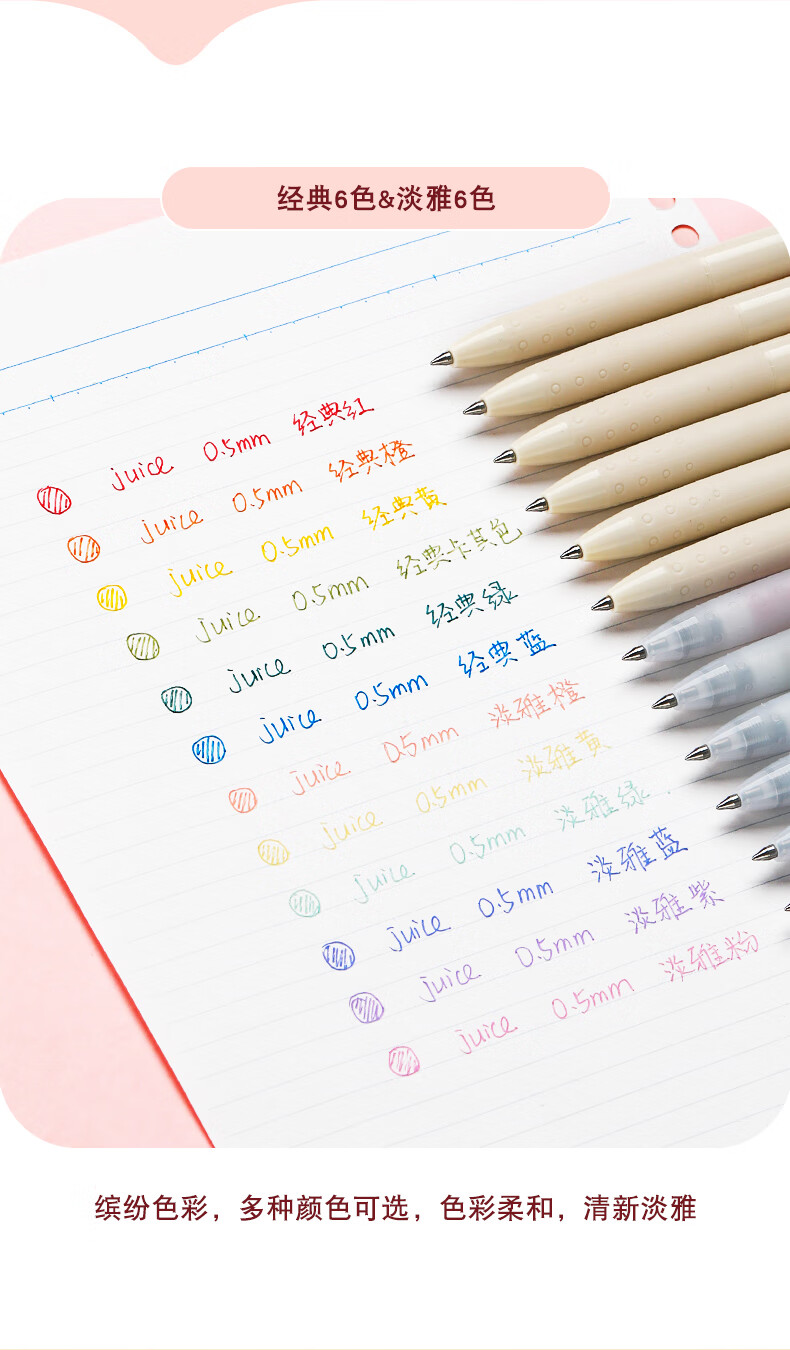 经典6色&淡雅6色
juice 0.5mm 经典红
juice 0.5mm 经典橙
juice 0.5mm 经典黄
juice 0.5mm 经典卡其色
juice 0.5mm 经典绿
juice 0.5mm 经典蓝
juice 0.5mm 淡雅橙
juice 0.5mm 淡雅黄
juice 0.5mm 淡雅绿
juice 0.5mm 淡雅蓝
juice 0.5mm 淡雅紫
juice 0.5mm 淡雅粉
缤纷色彩，多种颜色可选，色彩柔和，清新淡雅